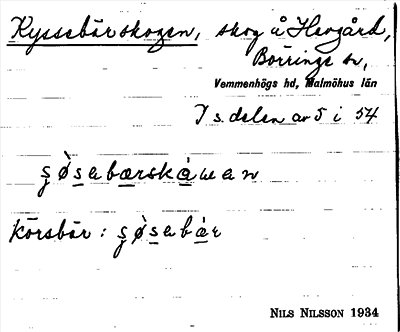 Kyssebärskogen, skog å Havgård,
Börringe sn,
Vemmenhögs hd, Malmöhus län
I s. delen av 5 i 54
körsbär :
NILS NILSSON 1934